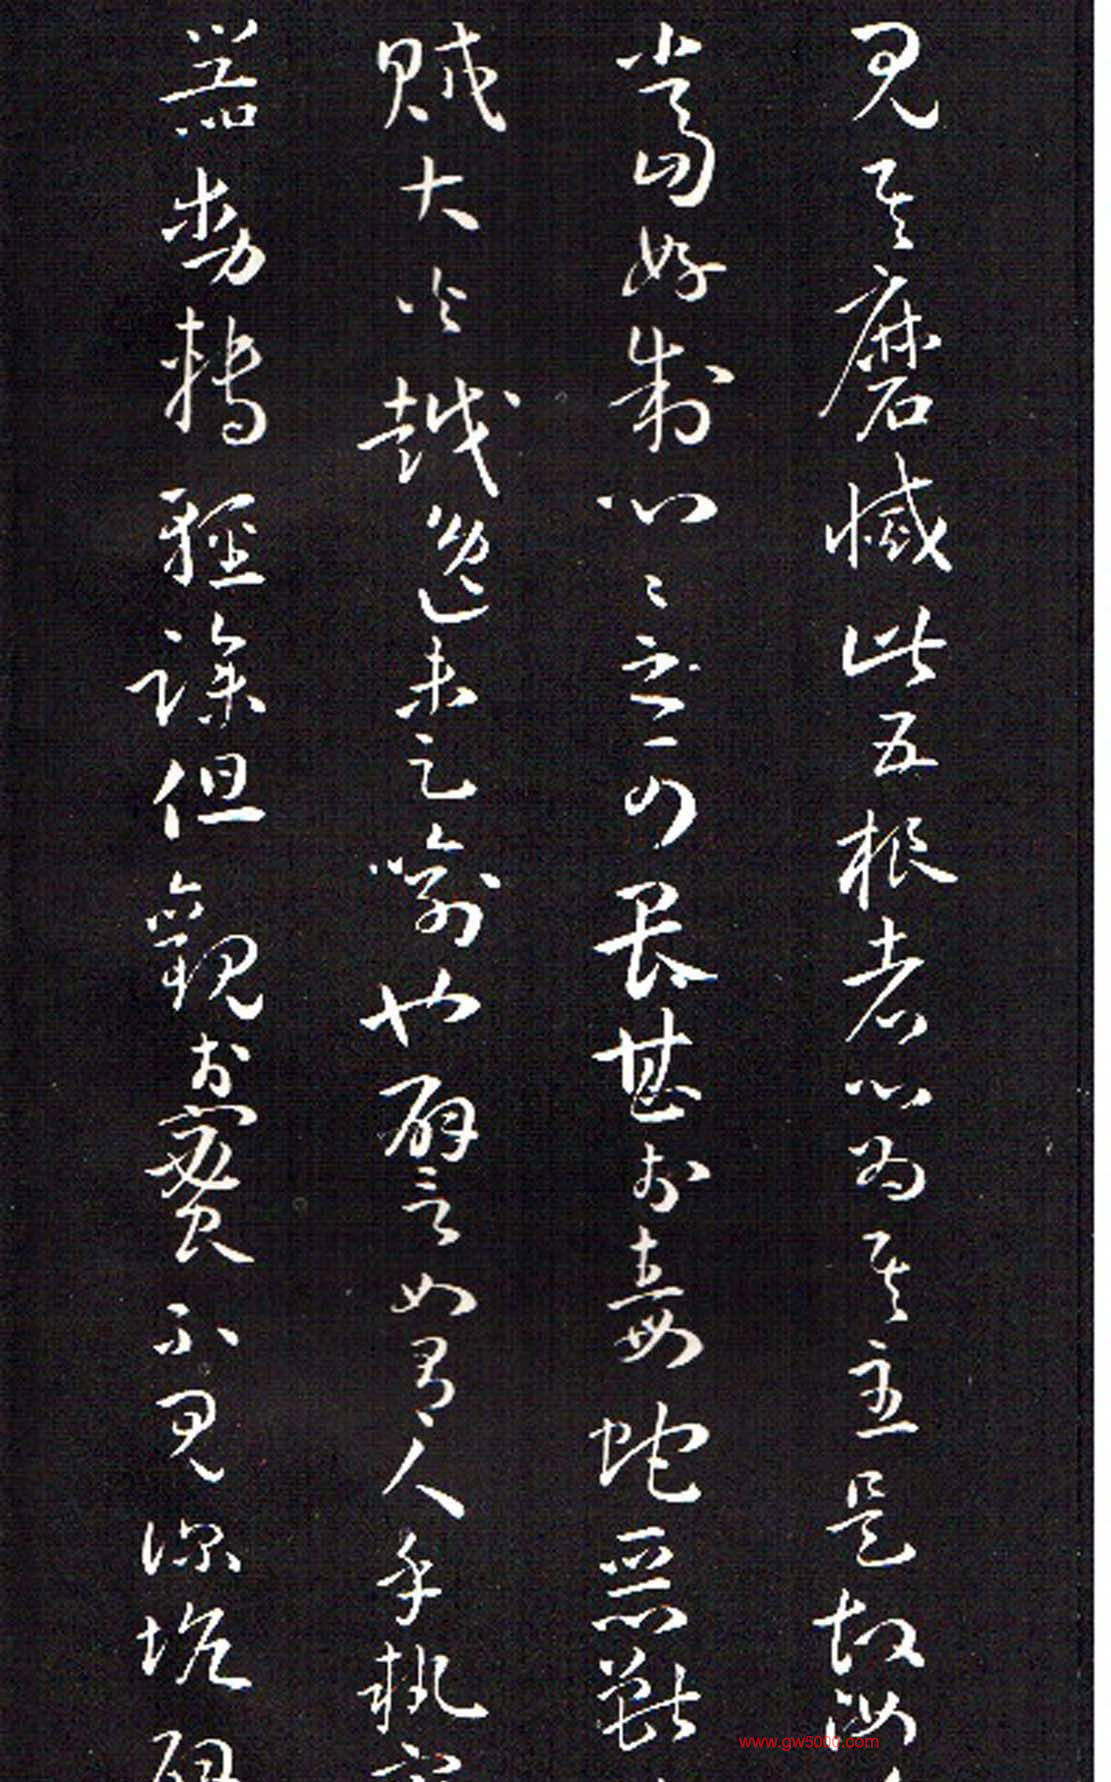 見其磨滅此五根者心為其主是故汝
當好制心心之可畏甚於毒蛇惡獸
賊大火越逸未足喻也譬如有人手執
器動轉輕躁但觀於蜜不見深坑
www.gw5000.com